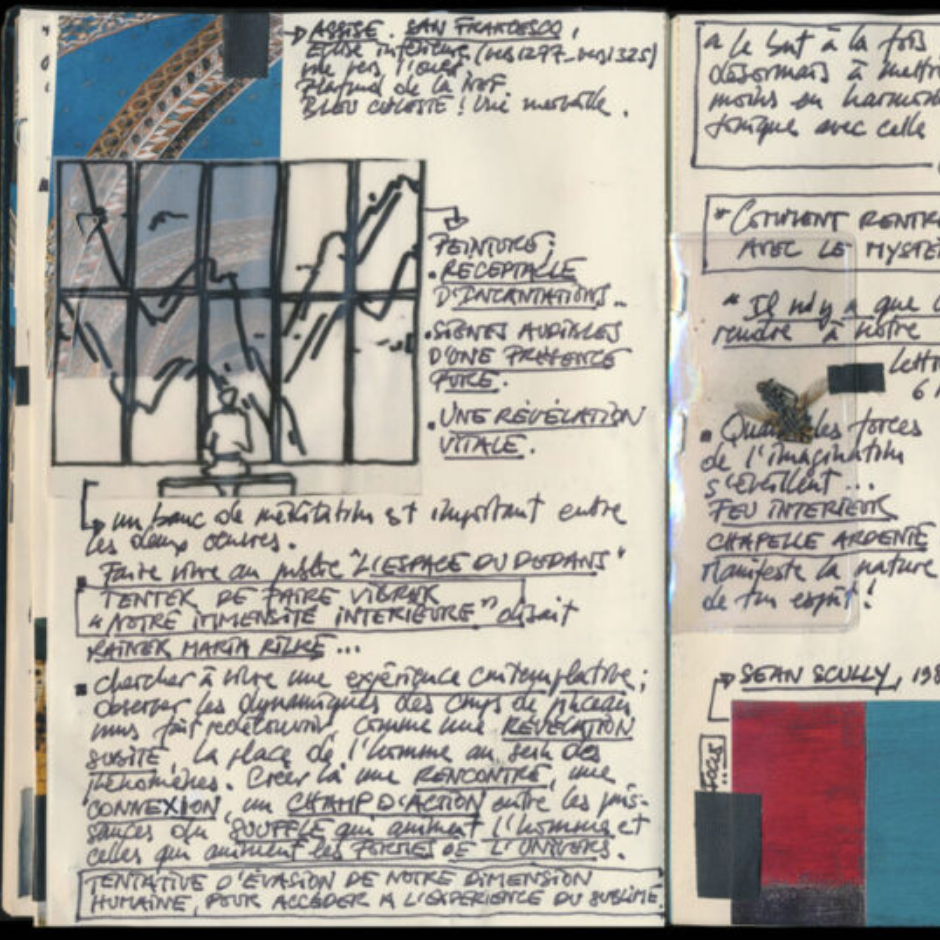 ASSISE. SAN FRANCESCO,
Eglise inférieure (1277-1325)
vue vers l'ouest
Plafond de la nef.
BLEU CELESTE! Une merveille.
PEINTURE;
. RECEPTACLE
D'INCANTATIONS...
. SIGNES AUDIBLES
D'UNE PRÉSENCE
PURE.
. UNE RÉVÉLATION
VITALE.
un banc de méditation est important entre
les deux œuvres.
Faire vivre au public "L'ESPACE DU DEDANS"
TENTER DE FAIRE VIBRER
"NOTRE IMMENSITÉ INTERIEURE" disait
RAINER MARIA RILKE ...
chercher à vivre une expérience contemplative;
observer les dynamiques des coups de pinceau
nous fait redécouvrir, comme une RÉVÉLATION
SUBITE, la place de l'homme au sein des
phénomènes. Créer là une RENCONTRE, une
CONNEXION, un CHAMP D'ACTION entre les puis-
sances du SOUFFLE qui animent l'homme et
celles qui animent les FORMES DE L'UNIVERS.
TENTATIVE D'ÉVASION DE NOTRE DIMENSION
HUMAINE, POUR ACCÉDER A L'EXPERIENCE DU SUBLIME.
a le but à la fois
désormais à mettre
moins en harmonie
tonique avec celle
"COMMENT RENTRE
AVEC LE MYSTÈ
"Il n'y a que
rendre à notre
Lettre
6
. Quand les forces
de l'imagination
s'éveillent ...
FEU INTERIEUR
CHAPELLE ARDENTE
Manifeste la nature
de ton esprit!
SEAN SCULLY, 198
FOCUS